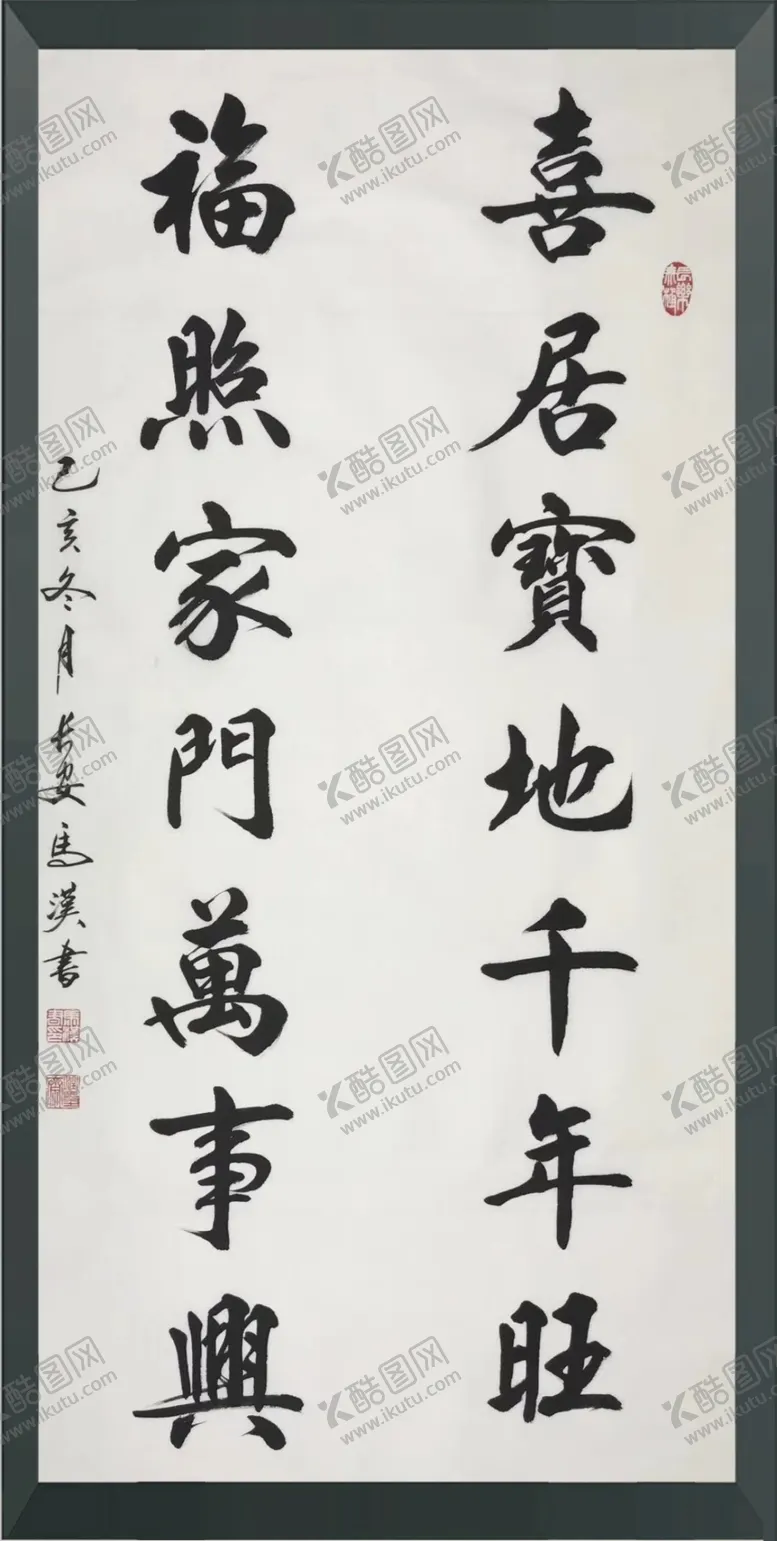 喜居寶地千年旺
福照家門萬事興
己亥冬月長安馬漢書
酷图网
www.ikutu.com